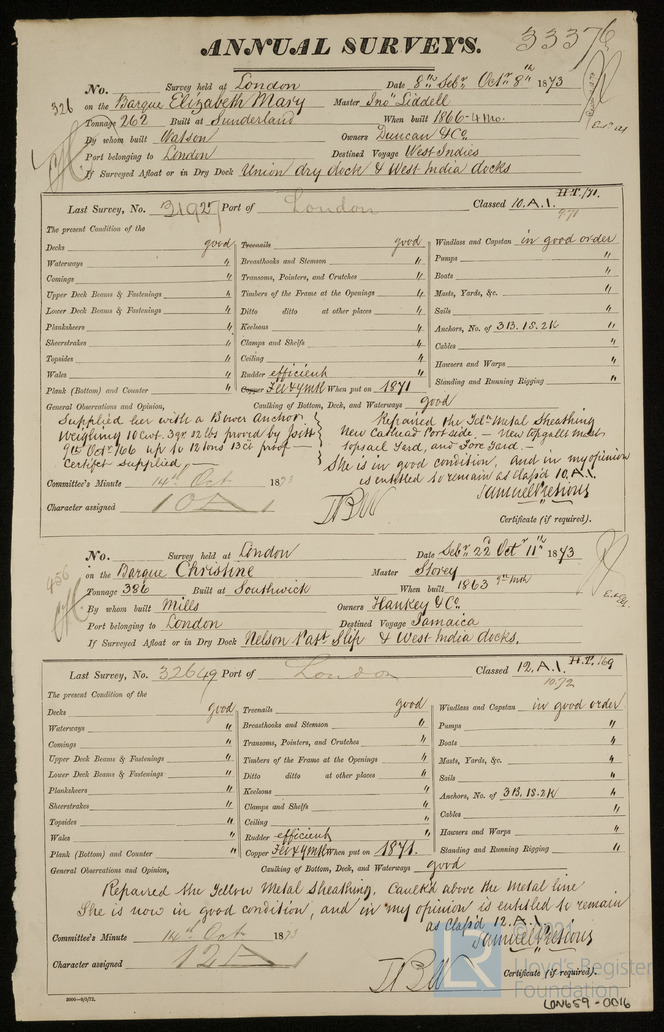 33376
ANNUAL SURVEYS.
No. 326 Survey held at London Date 8th Sebr Octr 8th 1873
on the Barque Elizabeth Mary Master Jno Liddell
Tonnage 262 Built at Sunderland When built 1866-4 mo.
By whom built Watson Owners Duncan & Co
Port belonging to London Destined Voyage West Indies
If Surveyed Afloat or in Dry Dock Union dry dock & West India docks
H.T./71.
Last Survey, No. 31927 Port of London Classed 10.A.1.
9/71
The present Condition of the
Decks good Treenails good Windlass and Capstan in good order
Waterways " Breasthooks and Stemson " Pumps "
Comings " Transoms, Pointers, and Crutches " Boats "
Upper Deck Beams & Fastenings " Timbers of the Frame at the Openings " Masts, Yards, &c. "
Lower Deck Beams & Fastenings " Ditto ditto at other places " Sails "
Planksheers " Keelsons " Anchors, No. of 3B.1S.2K "
Sheerstrakes " Clamps and Shelfs " Cables "
Topsides " Ceiling " Hawsers and Warps "
Wales " Rudder efficient Standing and Running Rigging "
Plank (Bottom) and Counter " Copper Felt & YM When put on 1871
General Observations and Opinion, Caulking of Bottom, Deck, and Waterways good
Supplied her with a Bower Anchor
Weighing 10 cwt. 3 qr. 02 lbs proved by
9th Octr /66 up to 12 tons 13 ct proof
Certifct supplied
Repaired the Yell. Metal Sheathing
New Cathead Port side. - New topgallt mast
topsail Yard, and Fore Yard. -
She is in good condition, and in my opinion
is entitled to remain as class'd 10.A.1.
Committee's Minute 14th Oct 1873
Character assigned 10A1
Certificate (if required).
No. 456 Survey held at London Date Sebr 22d Octr 11th 1873
on the Barque Christine Master Storey
Tonnage 386 Built at Southwick When built 1863
By whom built Mills Owners Hankey & Co.
Port belonging to London Destined Voyage Jamaica
If Surveyed Afloat or in Dry Dock Nelson Pat Slip & West India docks.
H.T. /69
Last Survey, No. 32649 Port of London Classed 12.A.1.
10.72
The present Condition of the
Decks good Treenails good Windlass and Capstan in good order
Waterways " Breasthooks and Stemson " Pumps "
Comings " Transoms, Pointers, and Crutches " Boats "
Upper Deck Beams & Fastenings " Timbers of the Frame at the Openings " Masts, Yards, &c. "
Lower Deck Beams & Fastenings " Ditto ditto at other places " Sails "
Planksheers " Keelsons " Anchors, No. of 3B.1S.2K "
Sheerstrakes " Clamps and Shelfs " Cables "
Topsides " Ceiling " Hawsers and Warps "
Wales " Rudder efficient Standing and Running Rigging "
Plank (Bottom) and Counter " Copper Felt & YM When put on 1871.
General Observations and Opinion, Caulking of Bottom, Deck, and Waterways good
Repaired the Yellow Metal Sheathing. Caulk'd above the metal line
She is now in good condition, and in my opinion is entitled to remain
as class'd 12.A.1.
Committee's Minute 14th Oct 1873
Character assigned 12A1
Certificate (if required).
LR
Lloyd's Register
Foundation
LON659-0016